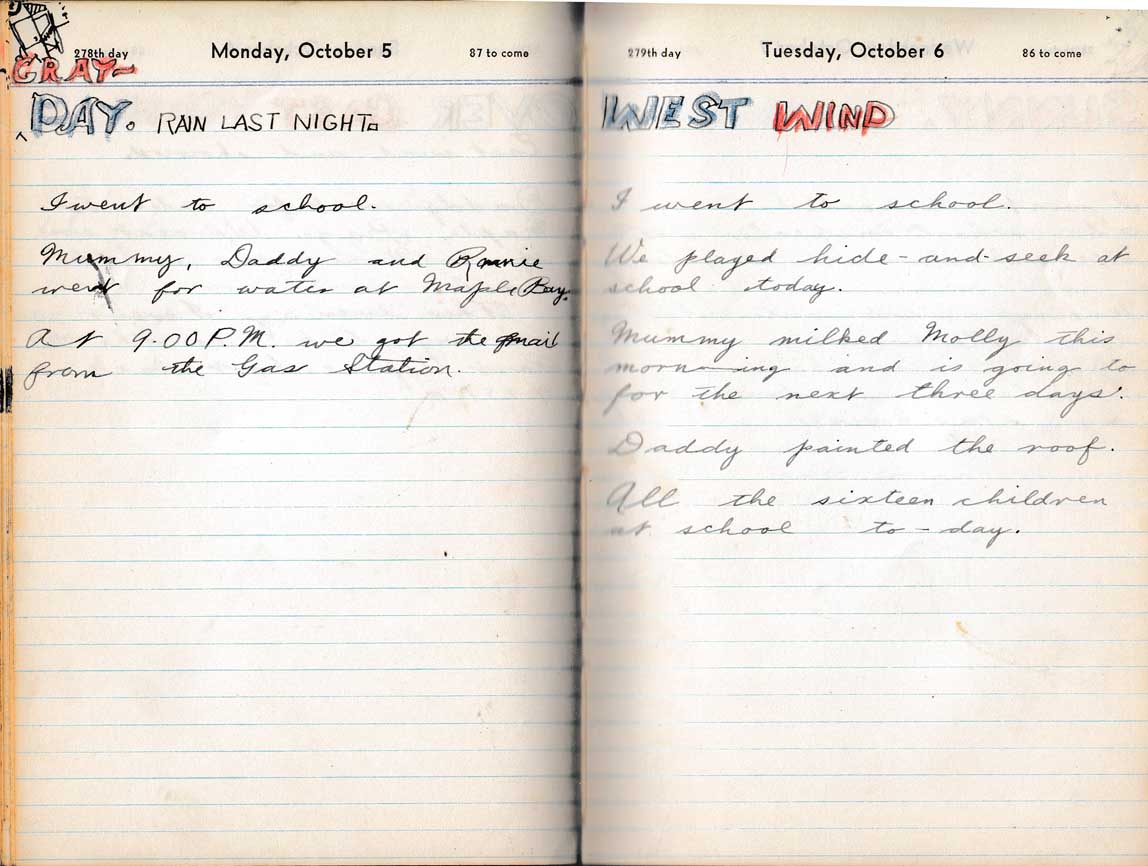 278th day Monday, October 5 87 to come
GRAY~
DAY. RAIN LAST NIGHT.
I went to school.
Mummy, Daddy and Ronnie
went for water at Maple Bay.
At 9.00 P.M. we got the mail
from the Gas Station.
279th day Tuesday, October 6 86 to come
WEST WIND
I went to school.
We played hide-and-seek at
school today.
Mummy milked Molly this
morn—ing and is going to
for the next three days.
Daddy painted the roof.
All the sixteen children
at school to-day.